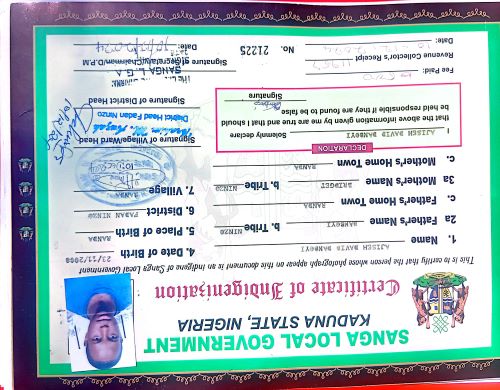 SANGA LOCAL GOVERNMENT
KADUNA STATE, NIGERIA
Certificate of Indigenization
This is to certify that the person whose photograph appear on this document is an indigene of Sanga Local Government
1. Name AJISEH DAVID DANBOYI
4. Date of Birth 23/11/2008
2a Father's Name DANBOYI b. Tribe NINZO
5. Place of Birth RANDA
c. Father's Home Town RANDA
6. District FADAN NINZO
3a Mother's Name BRIDGET b. Tribe NINZO
7. Village RANDA
c. Mother's Home Town RANDA
DECLARATION
I AJISEH DAVID DANBOYI solemnly declare
that the above information given by me are true and that I should
be held responsible if they are found to be false
Signature
Signature of Village/Ward Head
District Head Fadan Ninzo
Signature of District Head
Fee Paid:
Revenue Collector's Receipt
Date:
No. 21225
SANGA L.G.A
Signature/Chairman/D.P.M
Date: